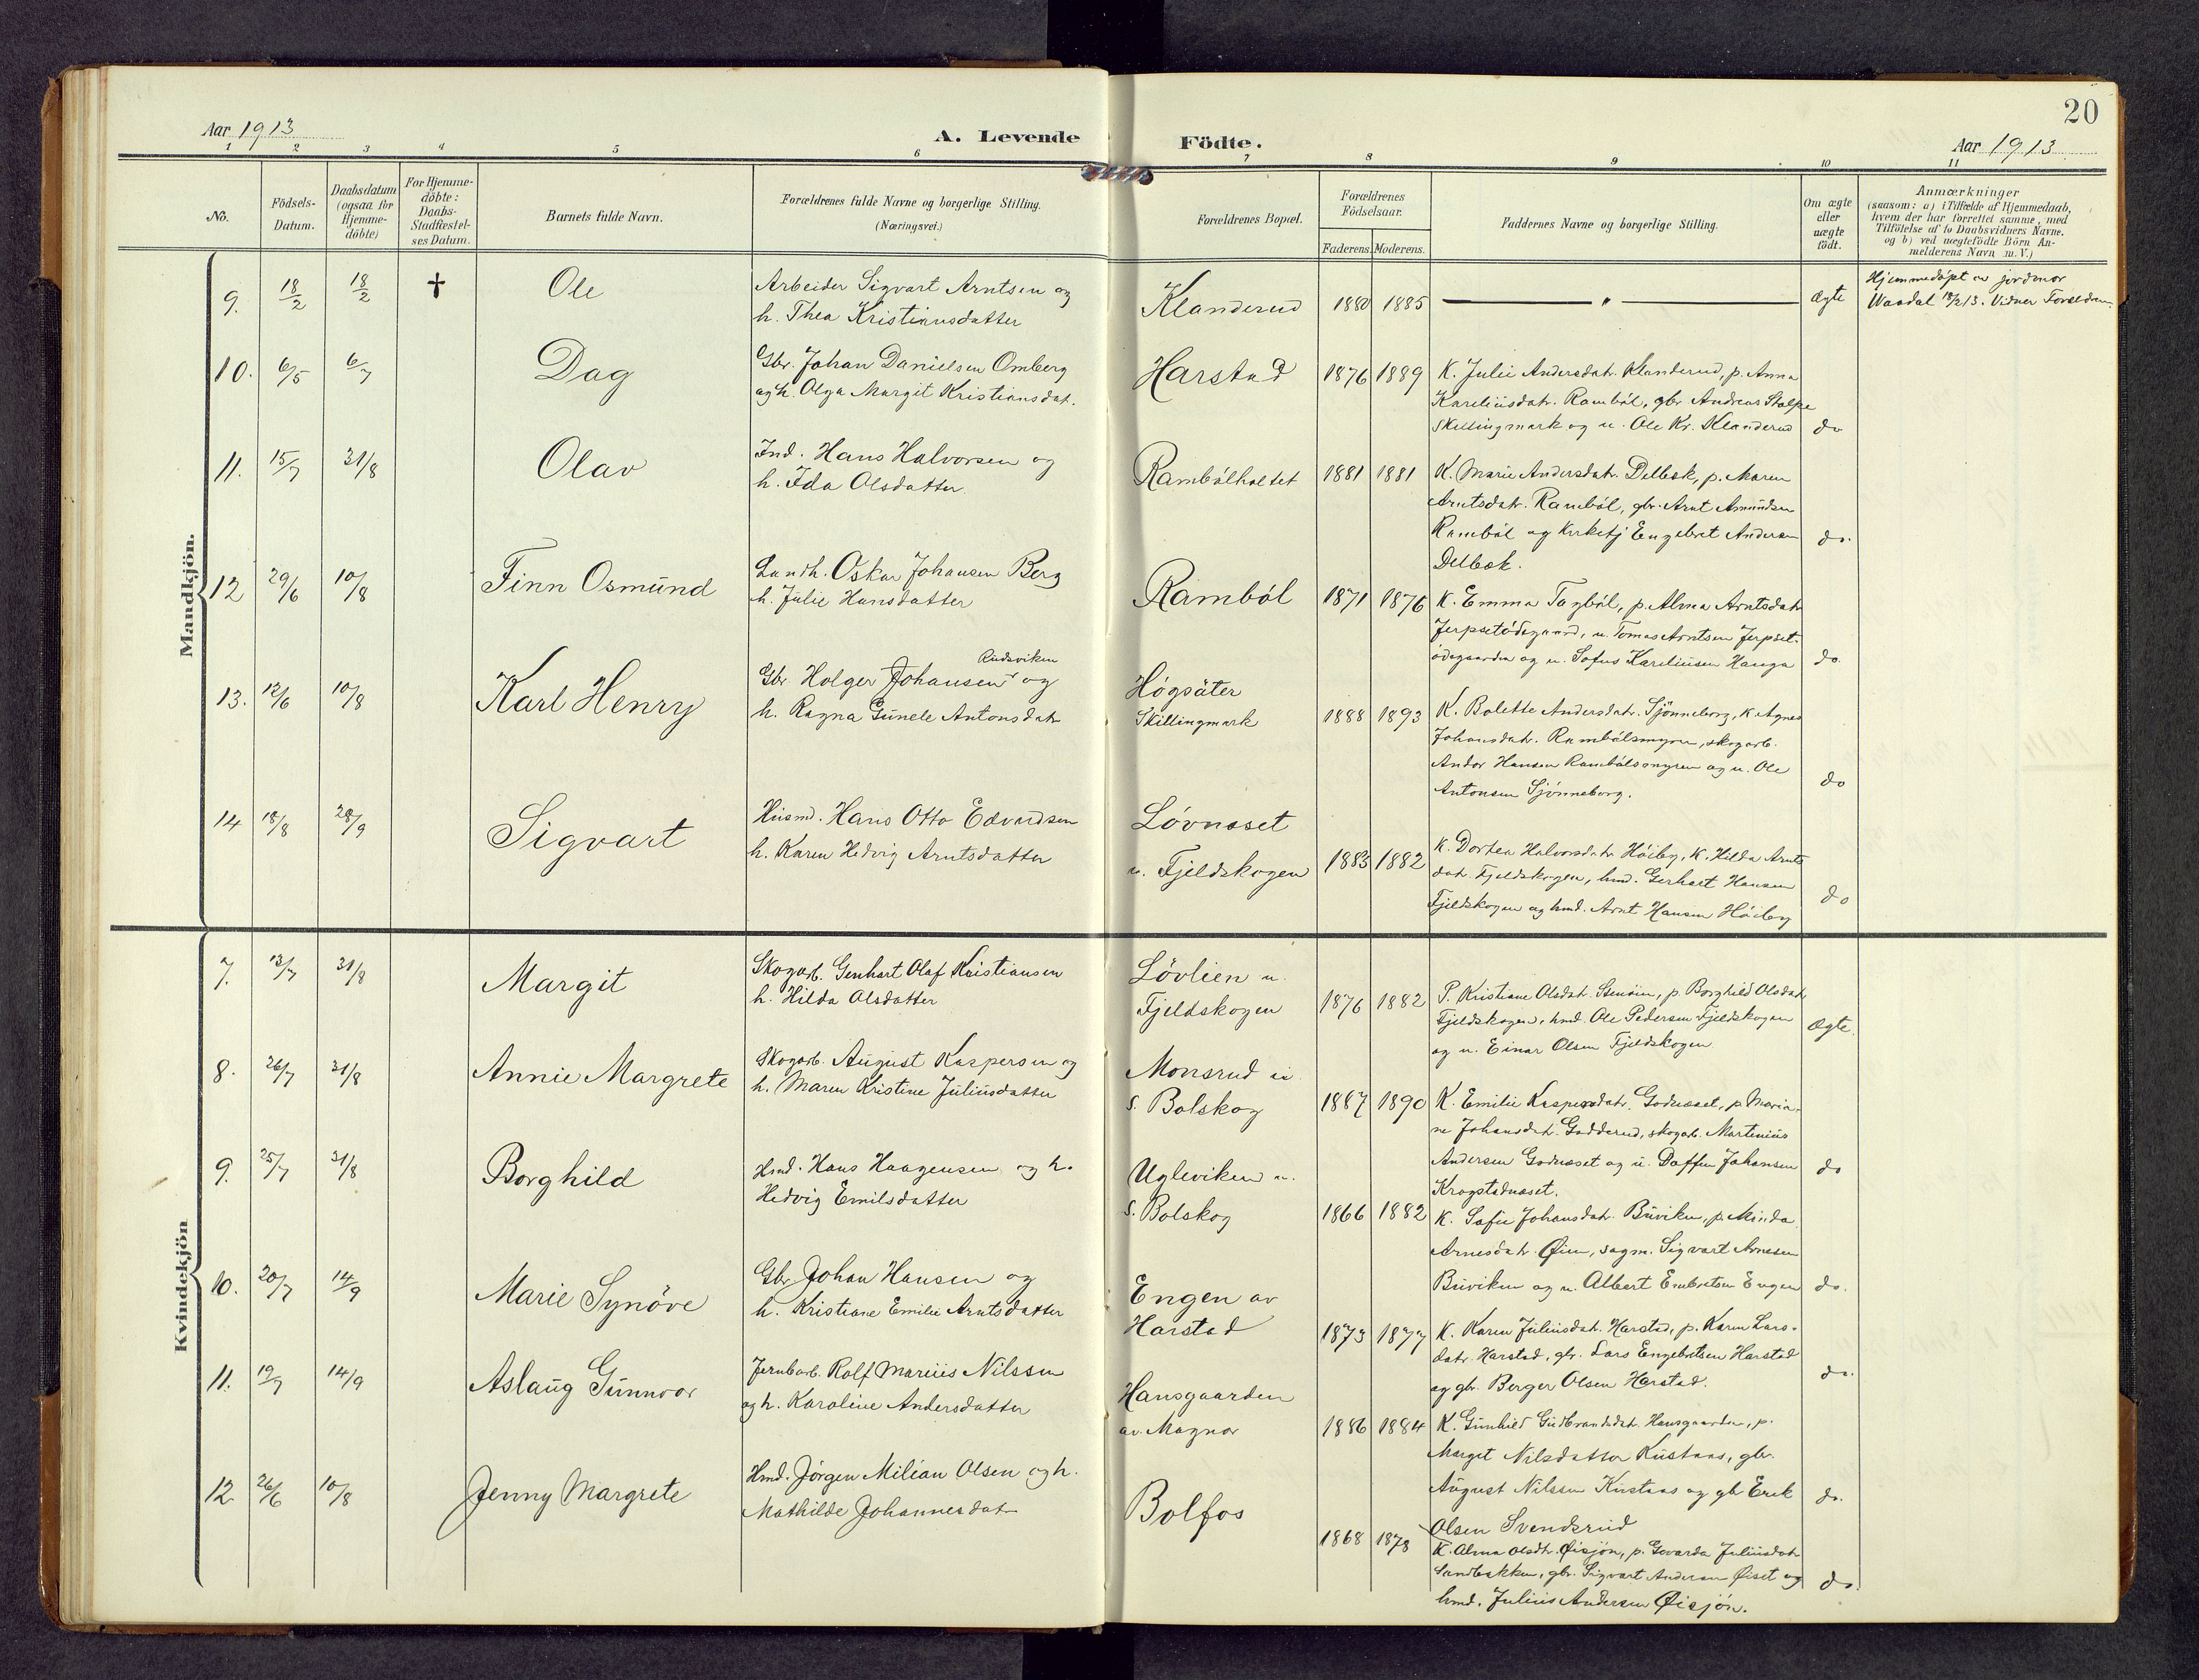 20
Aar 1913
A. Levende Födte.
Aar 1913
1 2 3 4 5 6 7 8 9 10 11
No.
Födsels-
Datum.
Daabsdatum
(ogsaa for
Hjemme-
döbte)
For Hjemme-
döbte:
Daabs-
Stadfæstel-
ses Datum.
Barnets fulde Navn.
Forældrenes fulde Navne og borgerlige Stilling.
(Næringsvei.)
Forældrenes Bopæl.
Forældrenes
Födselsaar.
Faderens. Moderens.
Faddernes Navne og borgerlige Stilling.
Om ægte
eller
uægte
födt.
Anmærkninger
(saasom: a) i Tilfælde af Hjemmedaab,
hvem der har forrettet samme, med
Tilföielse af to Daabsvidners Navne.
og b) ved uægtefödte Börn An-
melderens Navn m. V.)
Mandkjön.
9. 18/2 18/2 † Ole
Arbeider Sigvart Arntsen og
h. Thea Kristiansdatter
Klanderud 1880 1885 — " — ægte
Hjemmedöpt av jordmor
Waadal 18/2 13. Vidner Forældrene
10. 6/5 6/7 Dag
Gbr. Johan Danielsen Omberg
og h. Olga Margit Kristiansdat.
Harstad 1876 1889
K. Julie Andersdatr. Klanderud, p. Anna
Kareliusdatr. Ramböl, gbr Andreas Stolpe
Skillingmark og u. Ole Kr. Klanderud do
11. 15/7 31/8 Olav
Ind. Hans Halvorsen og
h. Ida Olsdatter
Rambölholtet 1881 1881
K. Marie Andersdatr. Delbæk, p. Maren
Arntsdatr. Ramböl, gbr. Arnt Amundsen
Ramböl og kirketj Engebret Andersen do.
Delbæk.
12 29/6 10/8 Finn Osmund
Landh. Oskar Johansen Berg
h. Julie Hansdatter
Ramböl 1871 1876
K. Emma Tagböl, p. Alma Arntsdatr
Jerpsetödegaard, u. Tomas Arntsen Jerpset-
ödegaarden og u. Sofus Kareliusen Hauga do
13. 12/6 10/8 Karl Henry
Rudsviken
Gbr. Holger Johansen og
h. Ragna Gunele Antonsdatr
Högsäter
Skillingmark 1888 1893
K. Bolette Andersdatr. Sjönneborg, K Agnes
Johansdatr. Rambölsmyren, skogarb.
Andor Hansen Rambölsmyren og u. Ole do
Antonsen Sjönneborg.
14 18/8 28/9 Sigvart
Husmd. Hans Otto Edvardsen
h. Karen Hedvig Arntsdatter
Lövnæset
u. Fjeldskogen 1883 1882
K. Dortea Halvorsdatr Höiby, K. Hilda Arnts
datr. Fjeldskogen, hmd. Gerhart Hansen do
Fjeldskogen og hmd. Arnt Hansen Höiby
Kvindekjön
7. 13/7 31/8 Margit
Skogarb. Gerhart Olaf Kristiansen
h. Hilda Olsdatter
Lövlien u.
Fjeldskogen 1876 1882
P. Kristiane Olsdatr. Stenöien, p. Borghild Olsdatr
Fjeldskogen, hmd. Ole Pedersen Fjeldskogen ægte.
og u. Einar Olsen Fjeldskogen
8. 26/7 31/8 Annie Margrete
Skogarb. August Kaspersen og
h. Maren Kristine Juliusdatter
Monsrud u
s. Bolskog 1887 1890
K. Emilie Kaspersdatr. Godnæset, p. Maria-
ne Johansdatr. Godderud, skogarb. Martenius
Andersen Godnæset og u. Daffin Johansen do
Krogstadnæset.
9. 25/7 31/8 Borghild
Hmd. Hans Haagensen og h.
Hedvig Emilsdatter
Ugleviken u.
s. Bolskog 1866 1882
K. Sofie Johansdatr. Buviken, p. Minda
Arnesdatr. Øien, sagm. Sigvart Arnesen
Buviken og u. Albert Embretsen Engen do.
10. 20/7 14/9 Marie Synöve
Gbr. Johan Hansen og
h. Kristiane Emilie Arntsdatter
Engen av
Harstad 1873 1877
K. Karen Juliusdatr. Harstad, p. Karen Lars-
datr. Harstad, gbr. Lars Engebretsen Harstad
og gbr. Berger Olsen Harstad. do.
11. 19/7 14/9 Aslaug Gunnvor
Jernbarb. Rolf Marius Nilssen
og h. Karoline Andersdatter
Hansgaarden
av. Magnor 1886 1884
K. Gunhild Gudbrandsdatr. Hansgaarden, p.
Margit Nilsdatter Kustaas, gbr.
August Nilssen Kustaas og gbr Erik do.
Olsen Svendsrud
12. 26/6 10/8 Jenny Margrete
Hmd. Jörgen Milian Olsen og h.
Mathilde Johannesdatr
Bolfos 1868 1878
K. Alma Olsdtr. Øisjön, p. Govarda Juliusdatr
Sandbakken, gbr. Sigvart Andersen Øiset og do.
hmd. Julius Andersen Øisjön.